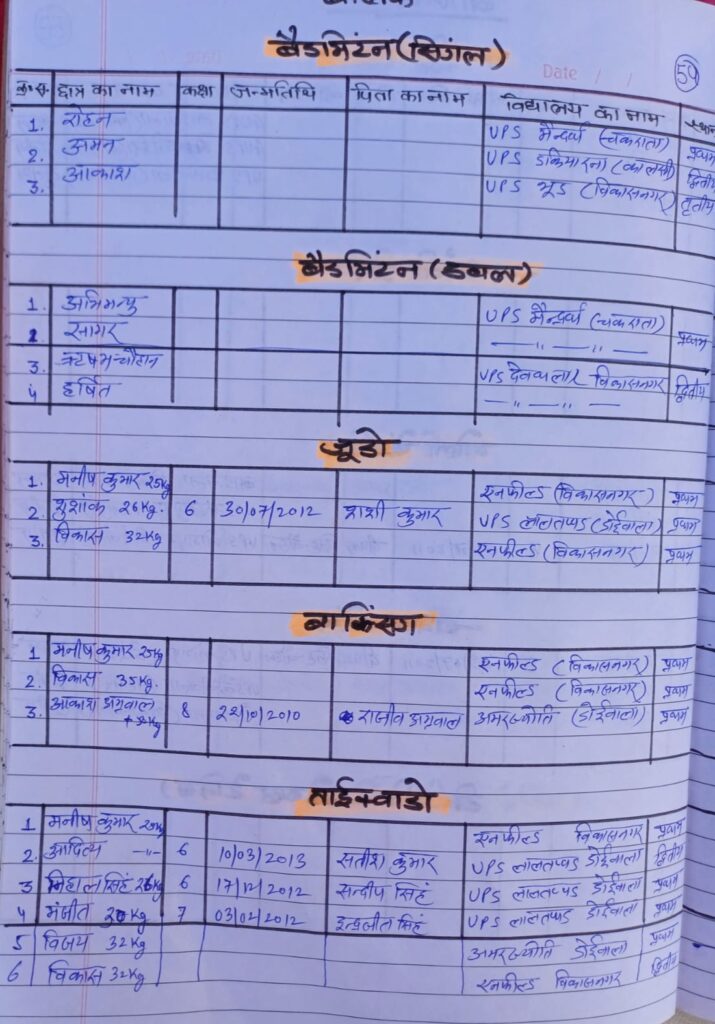 बैडमिंटन (सिंगल)
Date / /
59
क्र०स० छात्र का नाम कक्षा जन्मतिथि पिता का नाम विद्यालय का नाम स्थान
1. रोहन UPS मैन्द्रथ (चकराता) प्रथम
2. अमन UPS डकियारना (कालसी) द्वितीय
3. आकाश UPS भूड (विकासनगर) तृतीय
बैडमिंटन (डबल)
1. अभिमन्यु UPS मैन्द्रथ (चकराता) प्रथम
2. सागर — " — " —
3. ऋषभ चौहान UPS देवथला विकासनगर द्वितीय
4 हर्षित — " — " —
जूडो
1. मनीष कुमार 25kg एनफील्ड (विकासनगर) प्रथम
2. शुशांक 26kg. 6 30/07/2012 शशी कुमार UPS लालतप्पड (डोईवाला) प्रथम
3. विकास 32kg एनफील्ड (विकासनगर) प्रथम
बाकिंसग
1 मनीष कुमार 25kg एनफील्ड (विकासनगर) प्रथम
2. विकास 35kg. एनफील्ड (विकासनगर) प्रथम
3. आकाश अग्रवाल 8 22/10/2010 राजीव अग्रवाल अमरज्योति (डोईवाला) प्रथम
ताईक्वाडो
1 मनीष कुमार 25kg एनफील्ड विकासनगर प्रथम
2. आदित्य —"— 6 10/03/2013 सतीश कुमार UPS लालतप्पड डोईवाला द्वितीय
3 निहाल सिहं 26kg 6 17/12/2012 सन्दीप सिहं UPS लालतप्पड डोईवाला प्रथम
4 मंजीत kg 7 03/02/2012 इन्द्रजीत सिहं UPS लालतप्पड डोईवाला प्रथम
5 विजय 32kg अमरज्योति डोईवाला प्रथम
6 विकास 32kg एनफील्ड विकासनगर द्वितीय